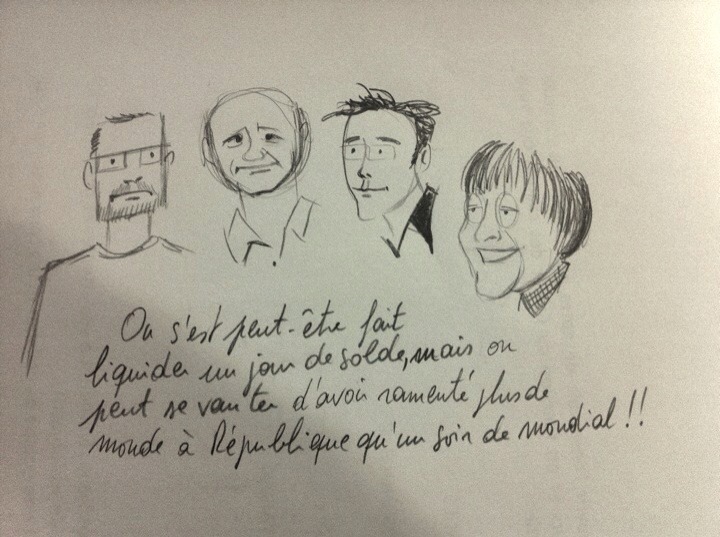 On s'est peut-être fait
liquider un jour de solde, mais on
peut se vanter d'avoir ramenté plus de
monde à République qu'un soir de mondial !!